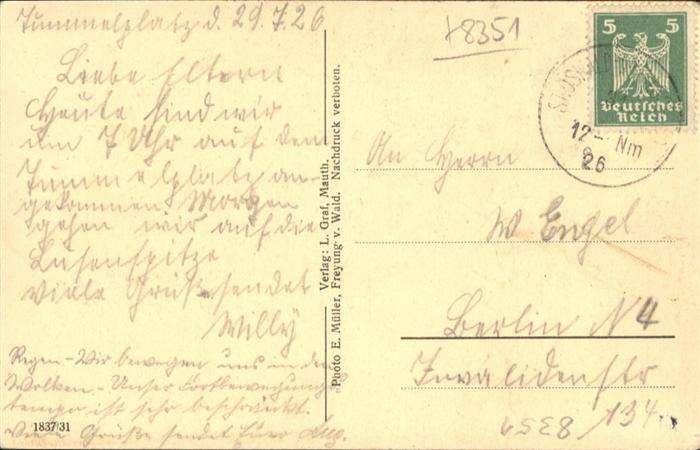 Tummelplatz d. 29.7.26
Liebe Eltern
Heute sind wir
um 7 Uhr auf dem
Tummelplatz an-
gekommen. Morgen
gehen wir auf die
Lusenspitze
Viele Grüße sendet
Willy
Regen - Wir bewegen uns in den
Wolken - Unser Fortbewegungs
tempo ist sehr beschränkt.
Viele Grüße sendet Euer
1837/31
Verlag: L. Graf, Mauth.
Photo E. Müller, Freyung v. Wald. Nachdruck verboten.
8351
5 5
Deutsches
Reich
12- Nm
26
An Herrn
W Engel
Berlin N 4
Invalidenstr
134